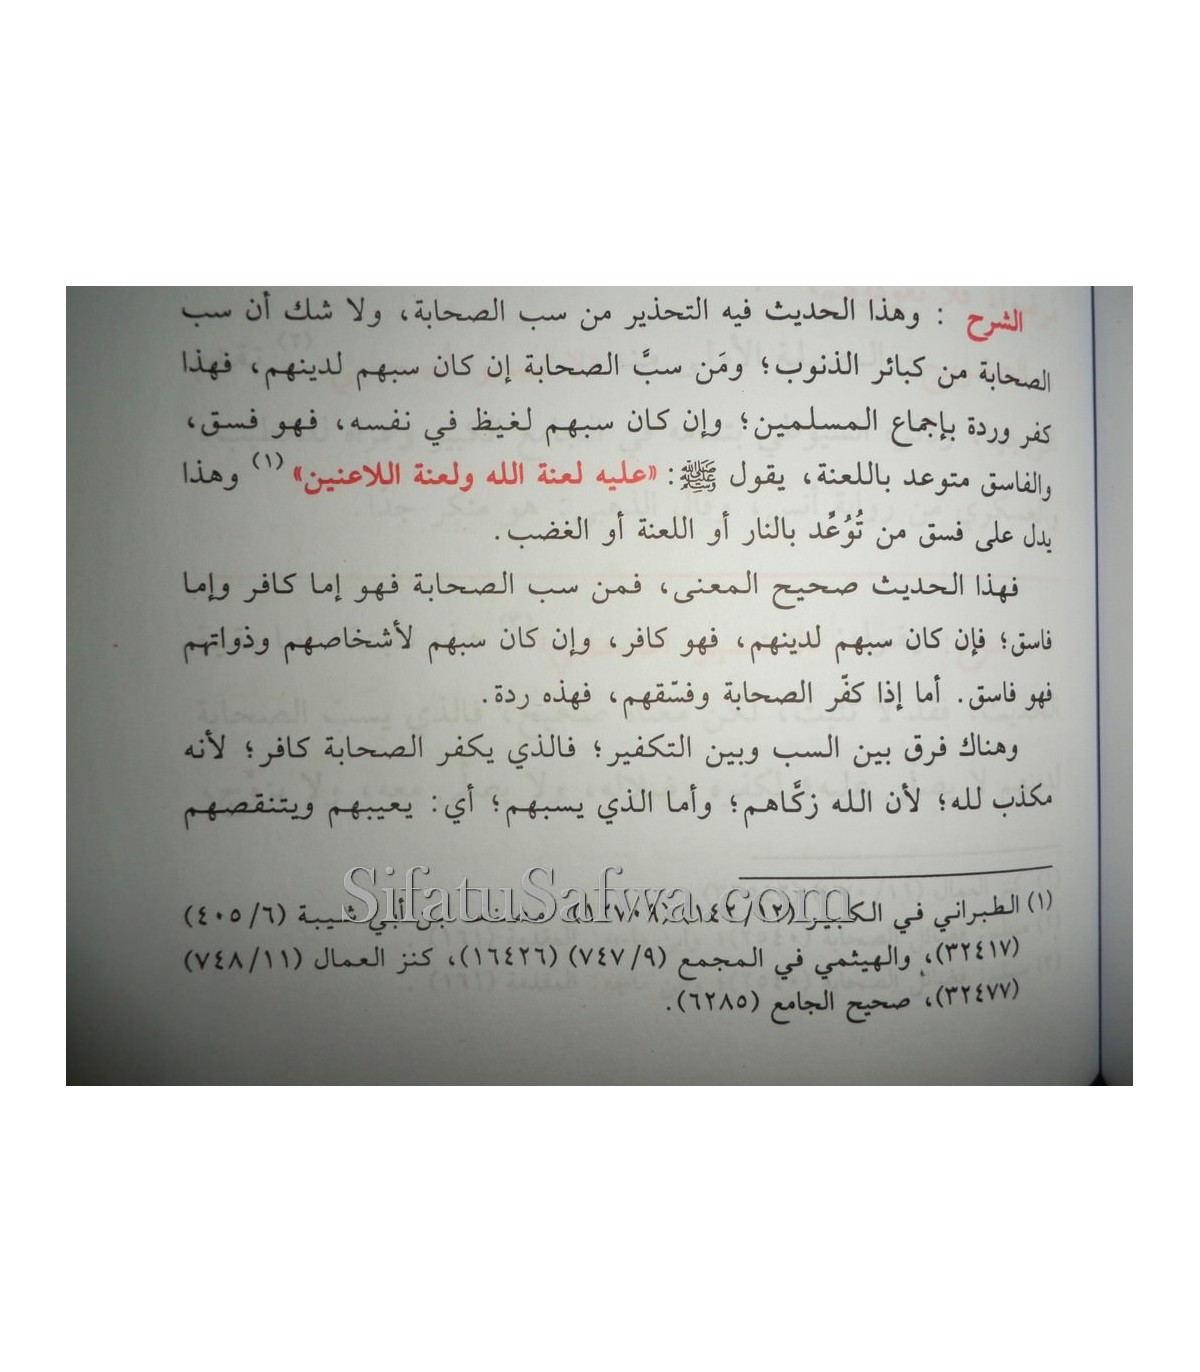 الشرح : وهذا الحديث فيه التحذير من سب الصحابة، ولا شك أن سب
الصحابة من كبائر الذنوب؛ ومَن سبَّ الصحابة إن كان سبهم لدينهم، فهذا
كفر وردة بإجماع المسلمين؛ وإن كان سبهم لغيظ في نفسه، فهو فسق،
والفاسق متوعد باللعنة، يقول ﷺ: «عليه لعنة الله ولعنة اللاعنين» (١) وهذا
يدل على فسق من تُوُعِّد بالنار أو اللعنة أو الغضب.
فهذا الحديث صحيح المعنى، فمن سب الصحابة فهو إما كافر وإما
فاسق؛ فإن كان سبهم لدينهم، فهو كافر، وإن كان سبهم لأشخاصهم وذواتهم
فهو فاسق. أما إذا كفّر الصحابة وفسّقهم، فهذه ردة.
وهناك فرق بين السب وبين التكفير؛ فالذي يكفر الصحابة كافر؛ لأنه
مكذب لله؛ لأن الله زكَّاهم؛ وأما الذي يسبهم؛ أي: يعيبهم ويتنقصهم
SifatuSafwa.com
(١) الطبراني في الكبير (١٤٢/١٢) (١٢٧٠٩)، مصنف ابن أبي شيبة (٤٠٥/٦)
(٣٢٤١٧)، والهيثمي في المجمع (٧٤٧/٩) (١٦٤٢٦)، كنز العمال (٧٤٨/١١)
(٣٢٤٧٧)، صحيح الجامع (٦٢٨٥).